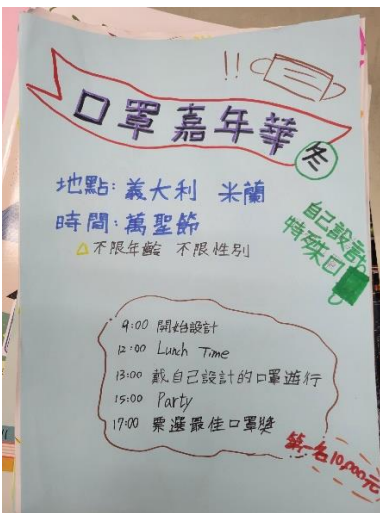 !!
口罩嘉年華
冬
地點:義大利 米蘭
時間:萬聖節
△不限年齡 不限性別
自己設計
特殊口
9:00 開始設計
12:00 Lunch Time
13:00 戴自己設計的口罩遊行
15:00 Party
17:00 票選最佳口罩獎
第一名10,000元